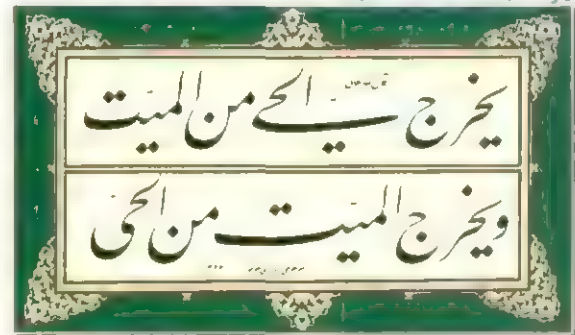 يخرج الحي من الميت
ويخرج الميت من الحي